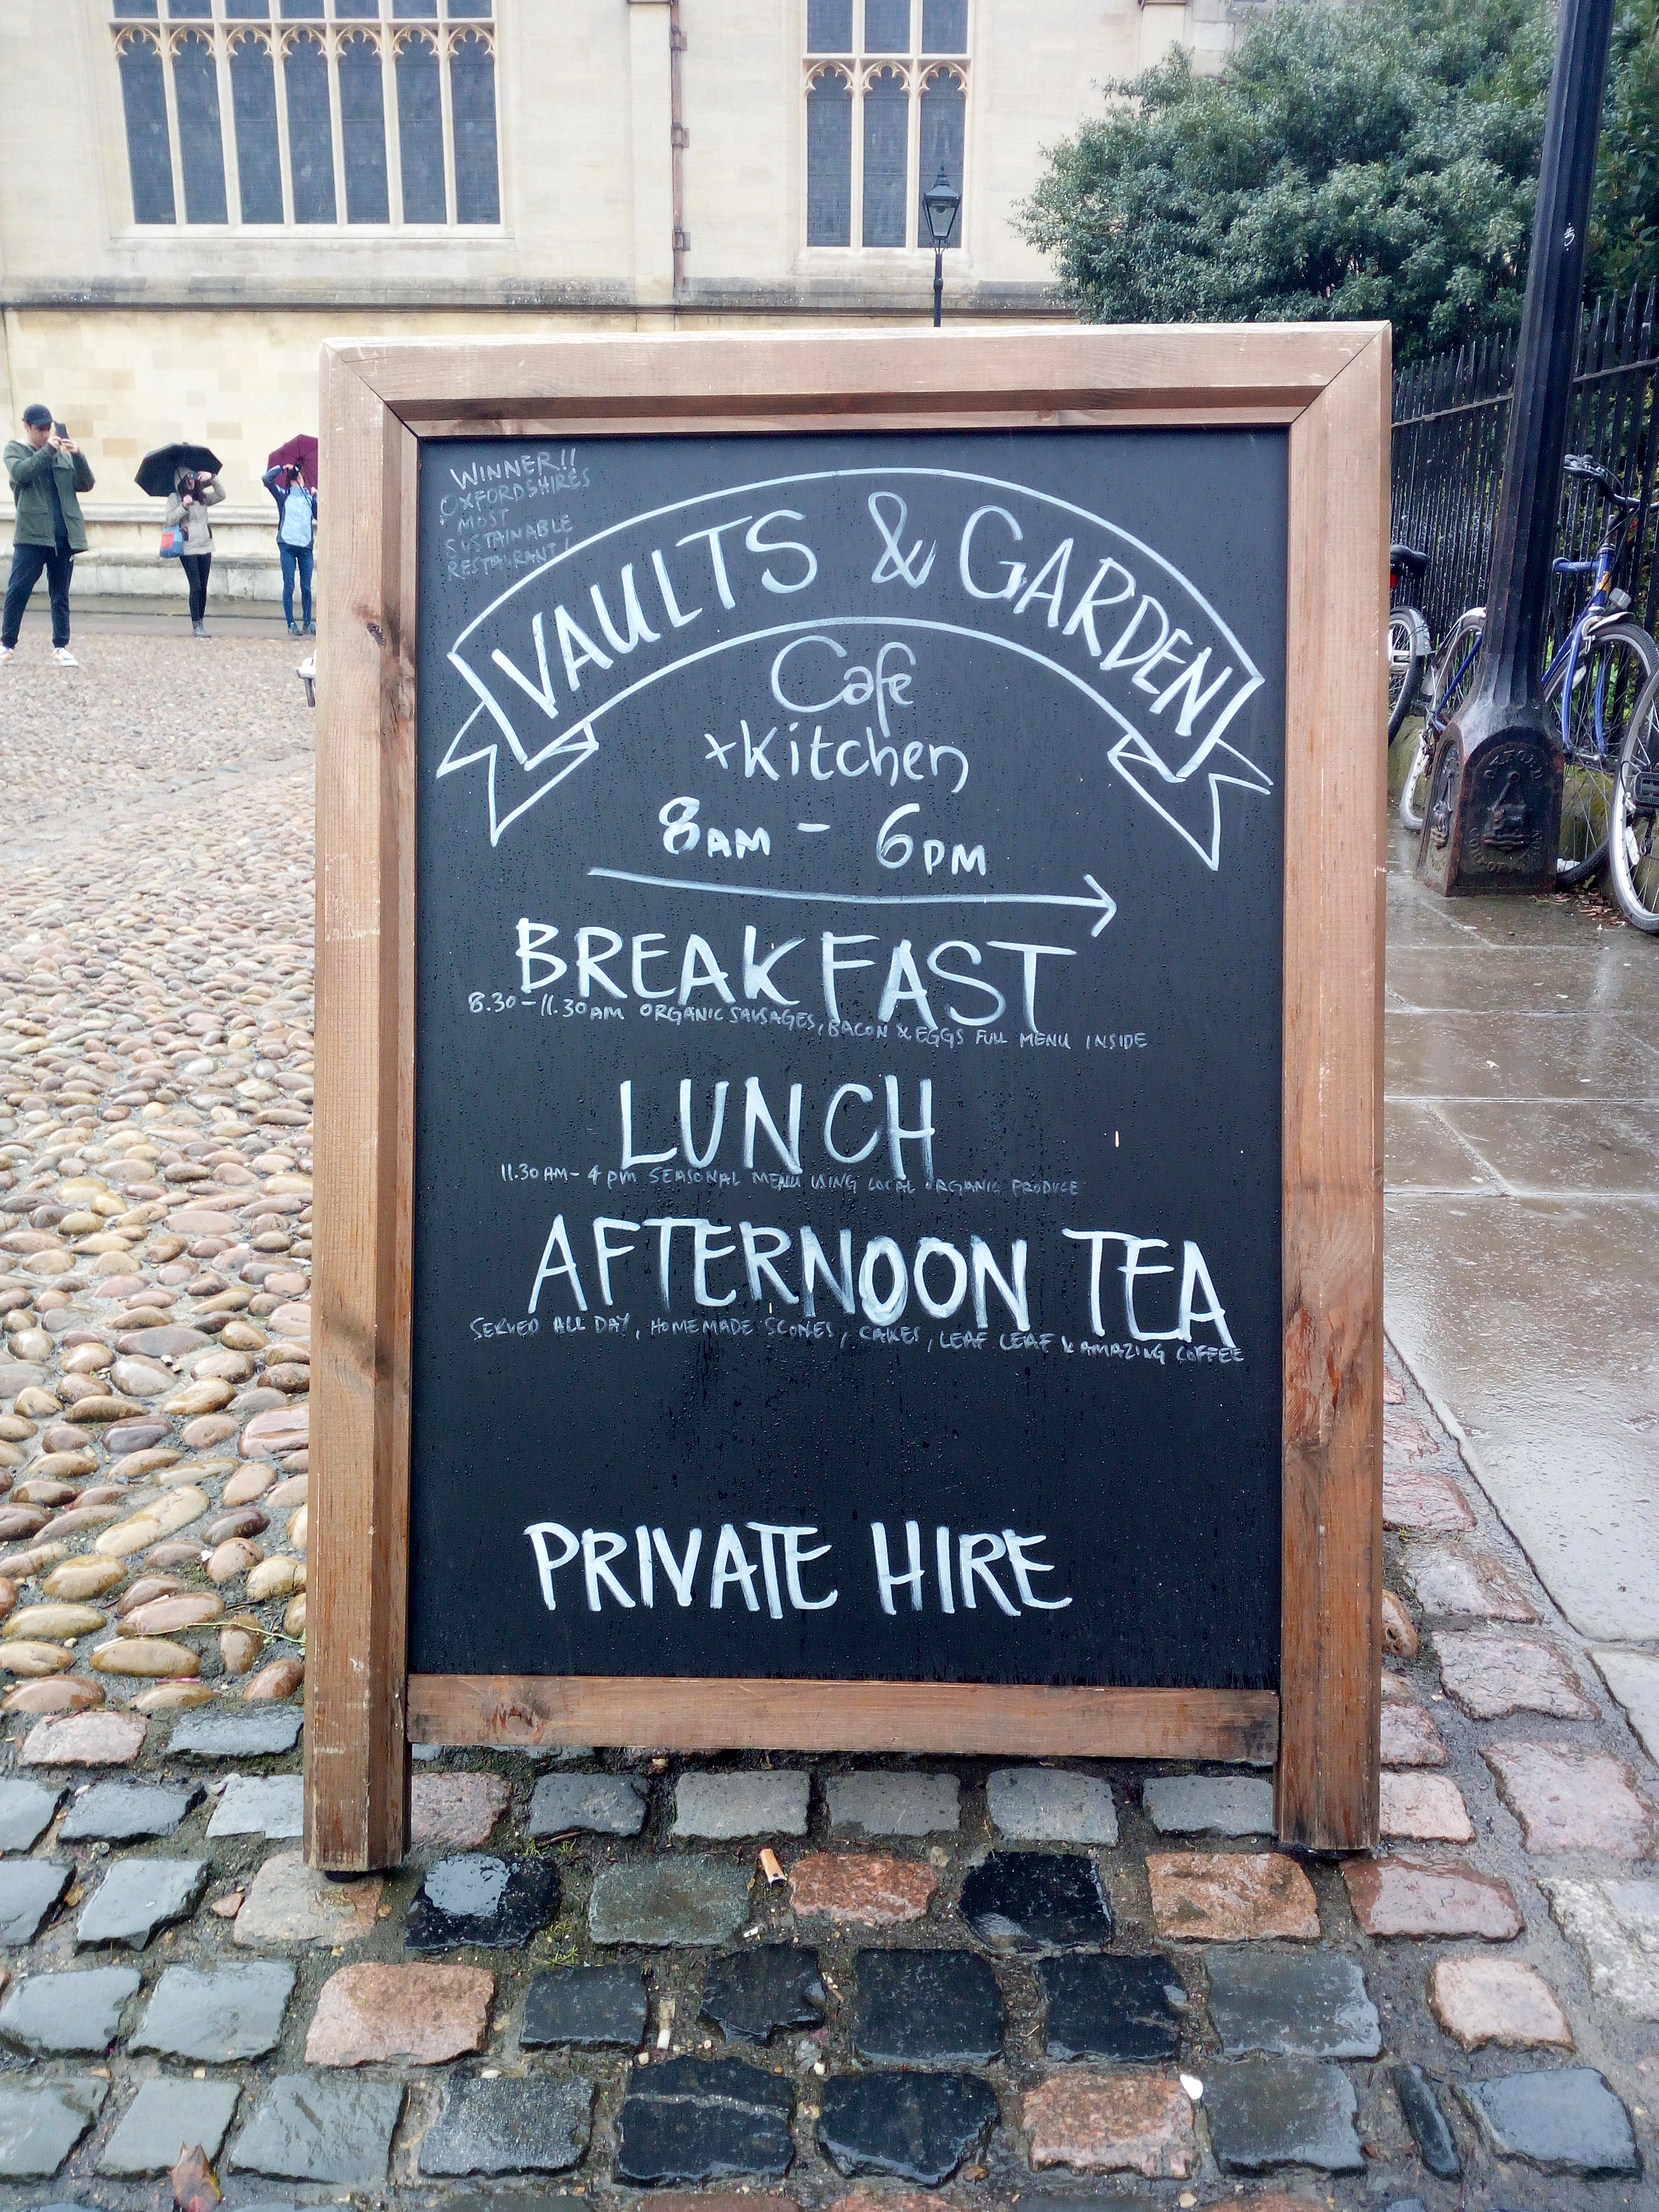 WINNER!!
OXFORDSHIRES
MOST
SUSTAINABLE
RESTAURANT!
VAULTS & GARDEN
Cafe
+Kitchen
8AM - 6PM
BREAKFAST
8.30-11.30AM ORGANIC SAUSAGES, BACON & EGGS FULL MENU INSIDE
LUNCH
11.30AM-4PM SEASONAL MENU USING LOCAL ORGANIC PRODUCE
AFTERNOON TEA
SERVED ALL DAY, HOMEMADE SCONES, CAKES, LEAF LEAF & AMAZING COFFEE
PRIVATE HIRE
OXFORD